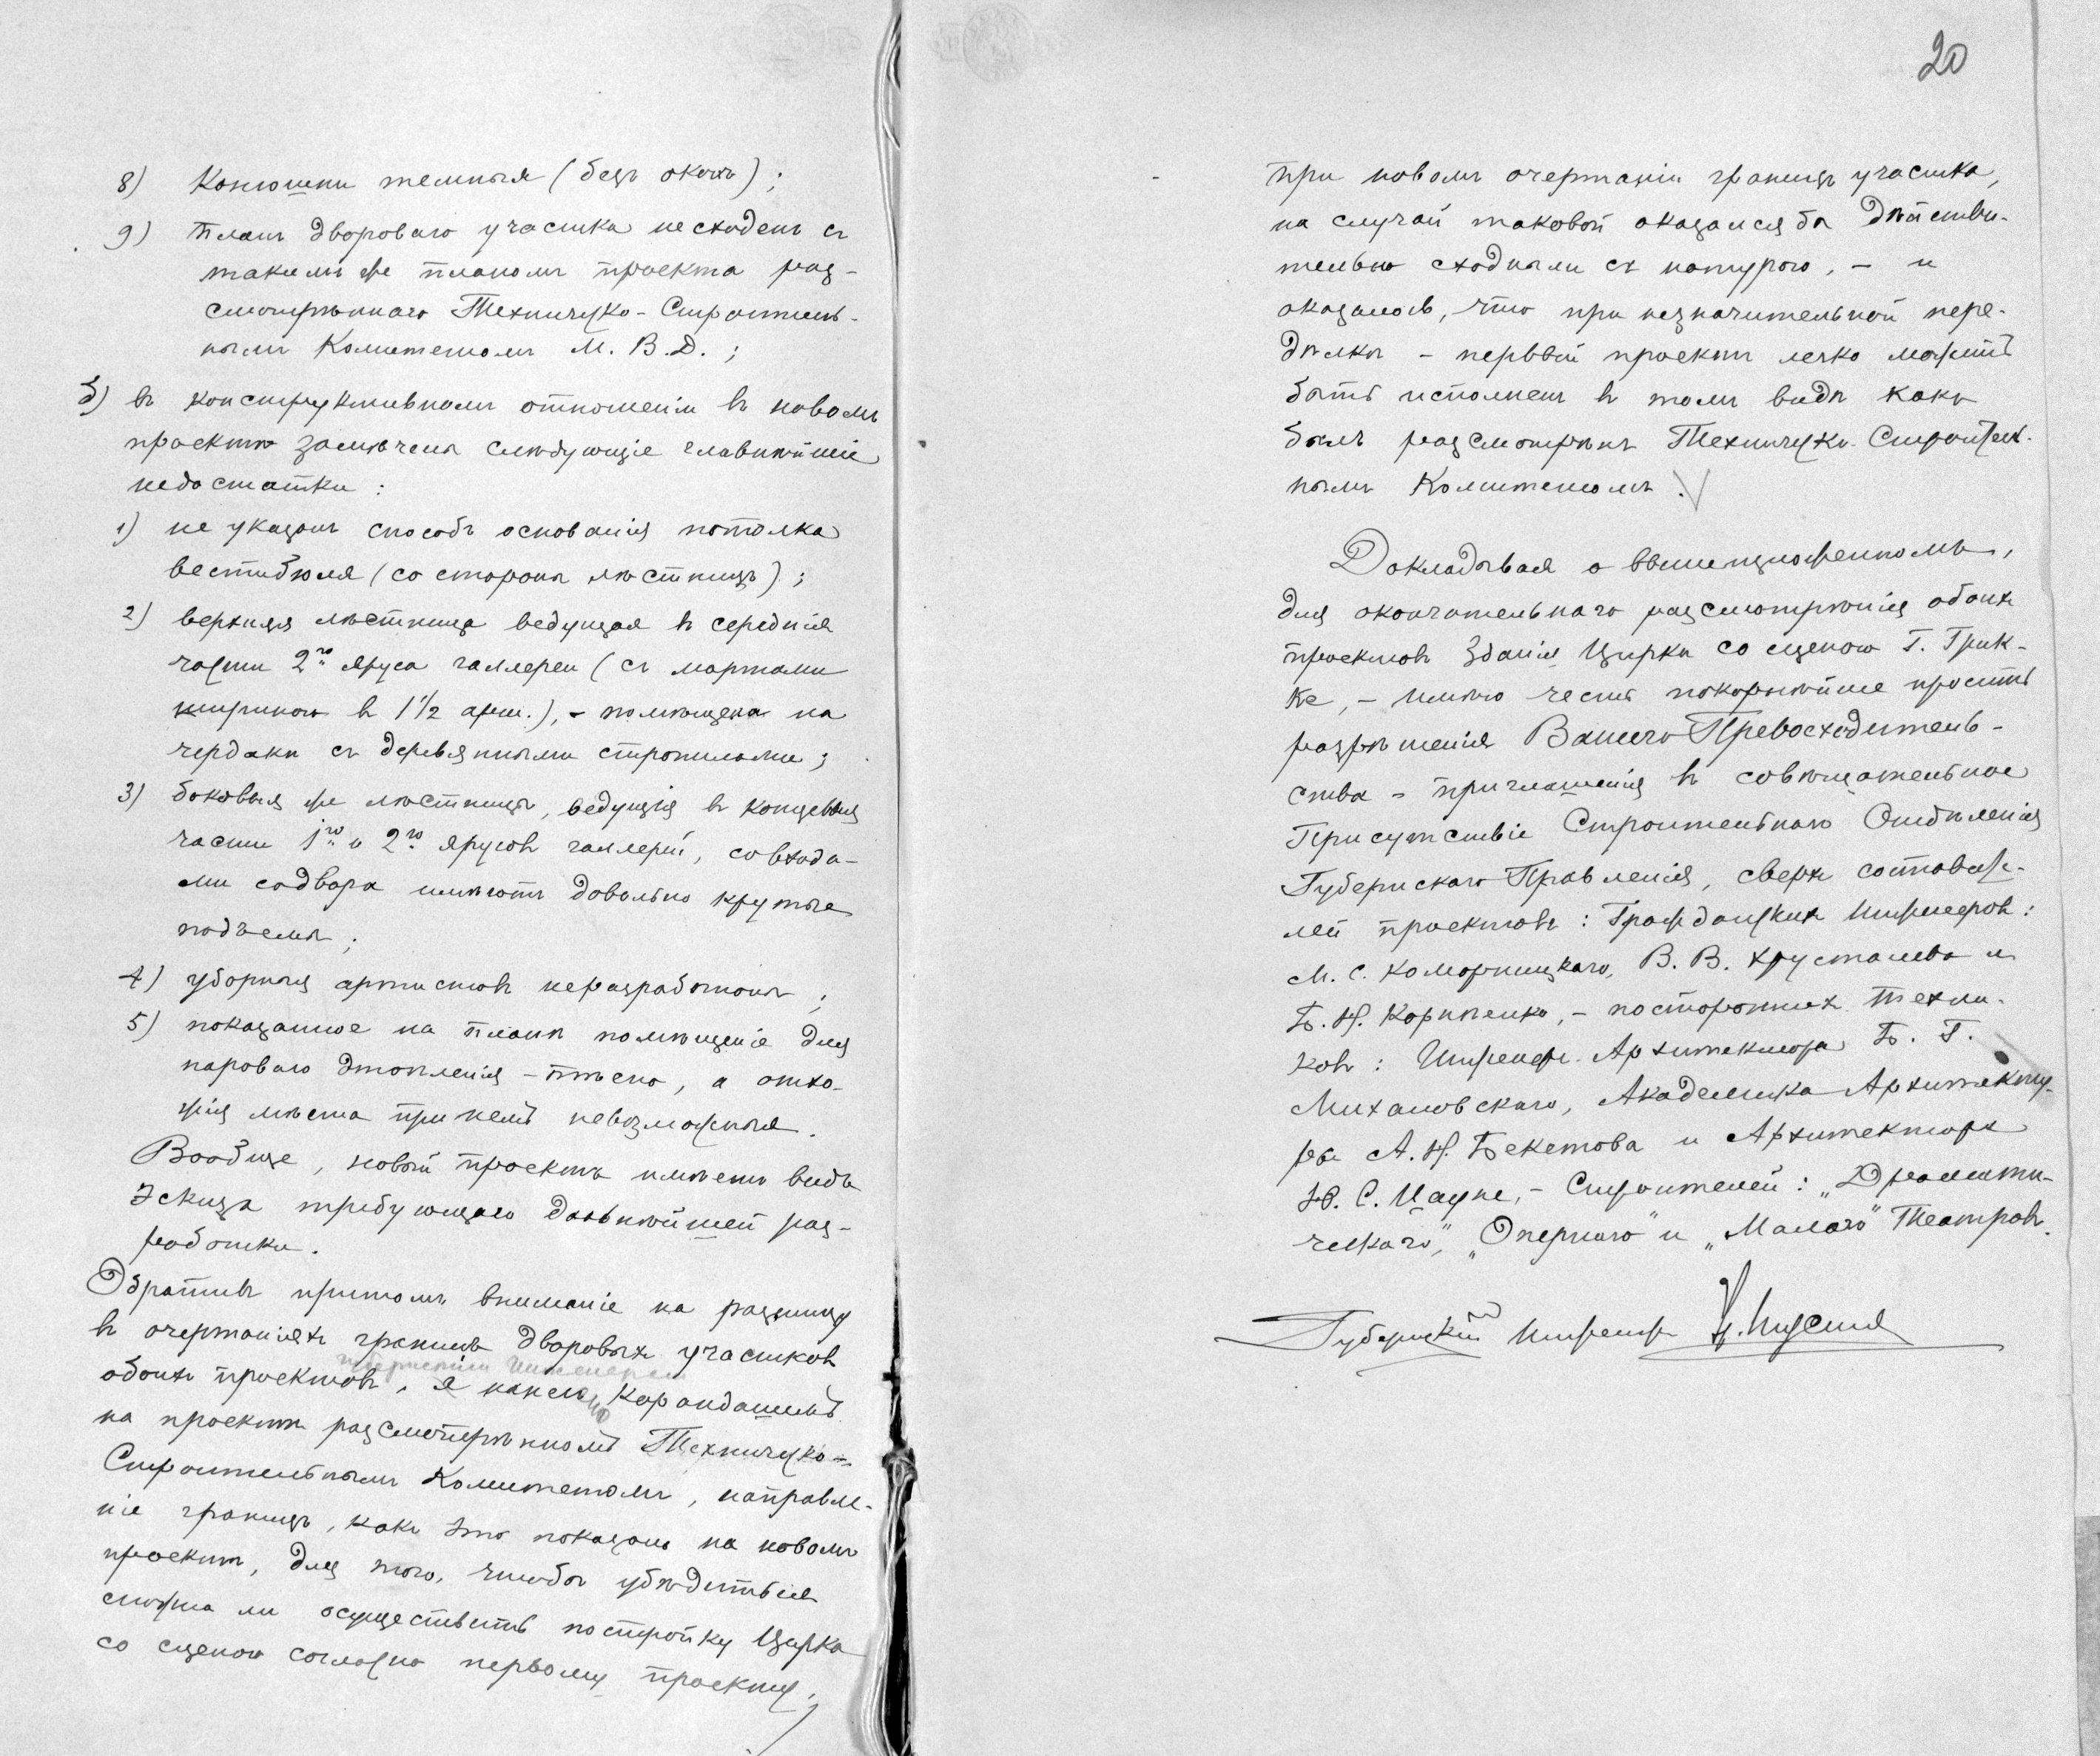 8) Конюшни темныя (безъ оконъ);
9) Планъ двороваго участка несходенъ съ
такимъ же планомъ проекта раз-
смотрѣннаго Техническо-Строитель-
нымъ Комитетомъ М. В. Д.;
б) въ конструктивномъ отношеніи въ новомъ
проектѣ замѣчены слѣдующіе главнѣйшіе
недостатки:
1) не указанъ способъ основанія потолка
вестибюля (со стороны лѣстницъ);
2) верхняя лѣстница ведущая въ середнія
части 2го яруса галлереи (съ маршами
шириною въ 1 1/2 арш.), - помѣщена на
чердакѣ съ деревянными стропилами;
3) боковыя же лѣстницы, ведущія въ концевыя
части 1го и 2го ярусовъ галлерей, со входа-
ми со двора имѣютъ довольно крутые
подъемы;
4) уборныя артистовъ неразработаны;
5) показанное на планѣ помѣщеніе для
пароваго отопленія - тѣсно, а отхо-
жія мѣста при немъ невозможныя.
Вообще, новый проектъ имѣетъ видъ
эскиза требующаго дальнѣйшей раз-
работки.
Обративъ притомъ вниманіе на разницу
въ очертаніяхъ границъ дворовыхъ участковъ
Губернскимъ Инженеромъ
обоихъ проектовъ, я нанесъ карандашемъ
на проектѣ разсмотрѣнномъ Техническо-
Строительнымъ Комитетомъ, направле-
ніе границъ, какъ это показано на новомъ
проектѣ, для того, чтобы убѣдиться
можно ли осуществить постройку Цирка
со сценою согласно первому проекту,
20
при новомъ очертаніи границъ участка,
на случай таковой оказался бы дѣйстви-
тельно сходнымъ съ натурою, - и
оказалось, что при незначительной пере-
дѣлкѣ - первый проектъ легко можетъ
быть исполненъ въ томъ видѣ какъ
былъ разсмотрѣнъ Техническо-Строитель-
нымъ Комитетомъ.
Докладывая о вышеизложенномъ,
для окончательнаго разсмотрѣнія обоихъ
проектовъ зданія Цирка со сценою Г. Грик-
ке, - имѣю честь покорнѣйше просить
разрѣшенія Вашего Превосходитель-
ства - приглашенія въ совѣщательное
Присутствіе Строительнаго Отдѣленія
Губернскаго Правленія, сверхъ составите-
лей проектовъ: Гражданскихъ Инженеровъ:
М. С. Коморницкаго, В. В. Хрусталева и
Б. Н. Корнѣенко, - постороннихъ техни-
ковъ: Инженеръ-Архитектора Б. Г.
Михаловскаго, Академика Архитекту-
ры А. Н. Бекетова и Архитектора
Ю. С. Цауне, - Строителей: „Драмати-
ческаго", „Опернаго" и „Малаго" Театровъ.
Губернскій Инженеръ